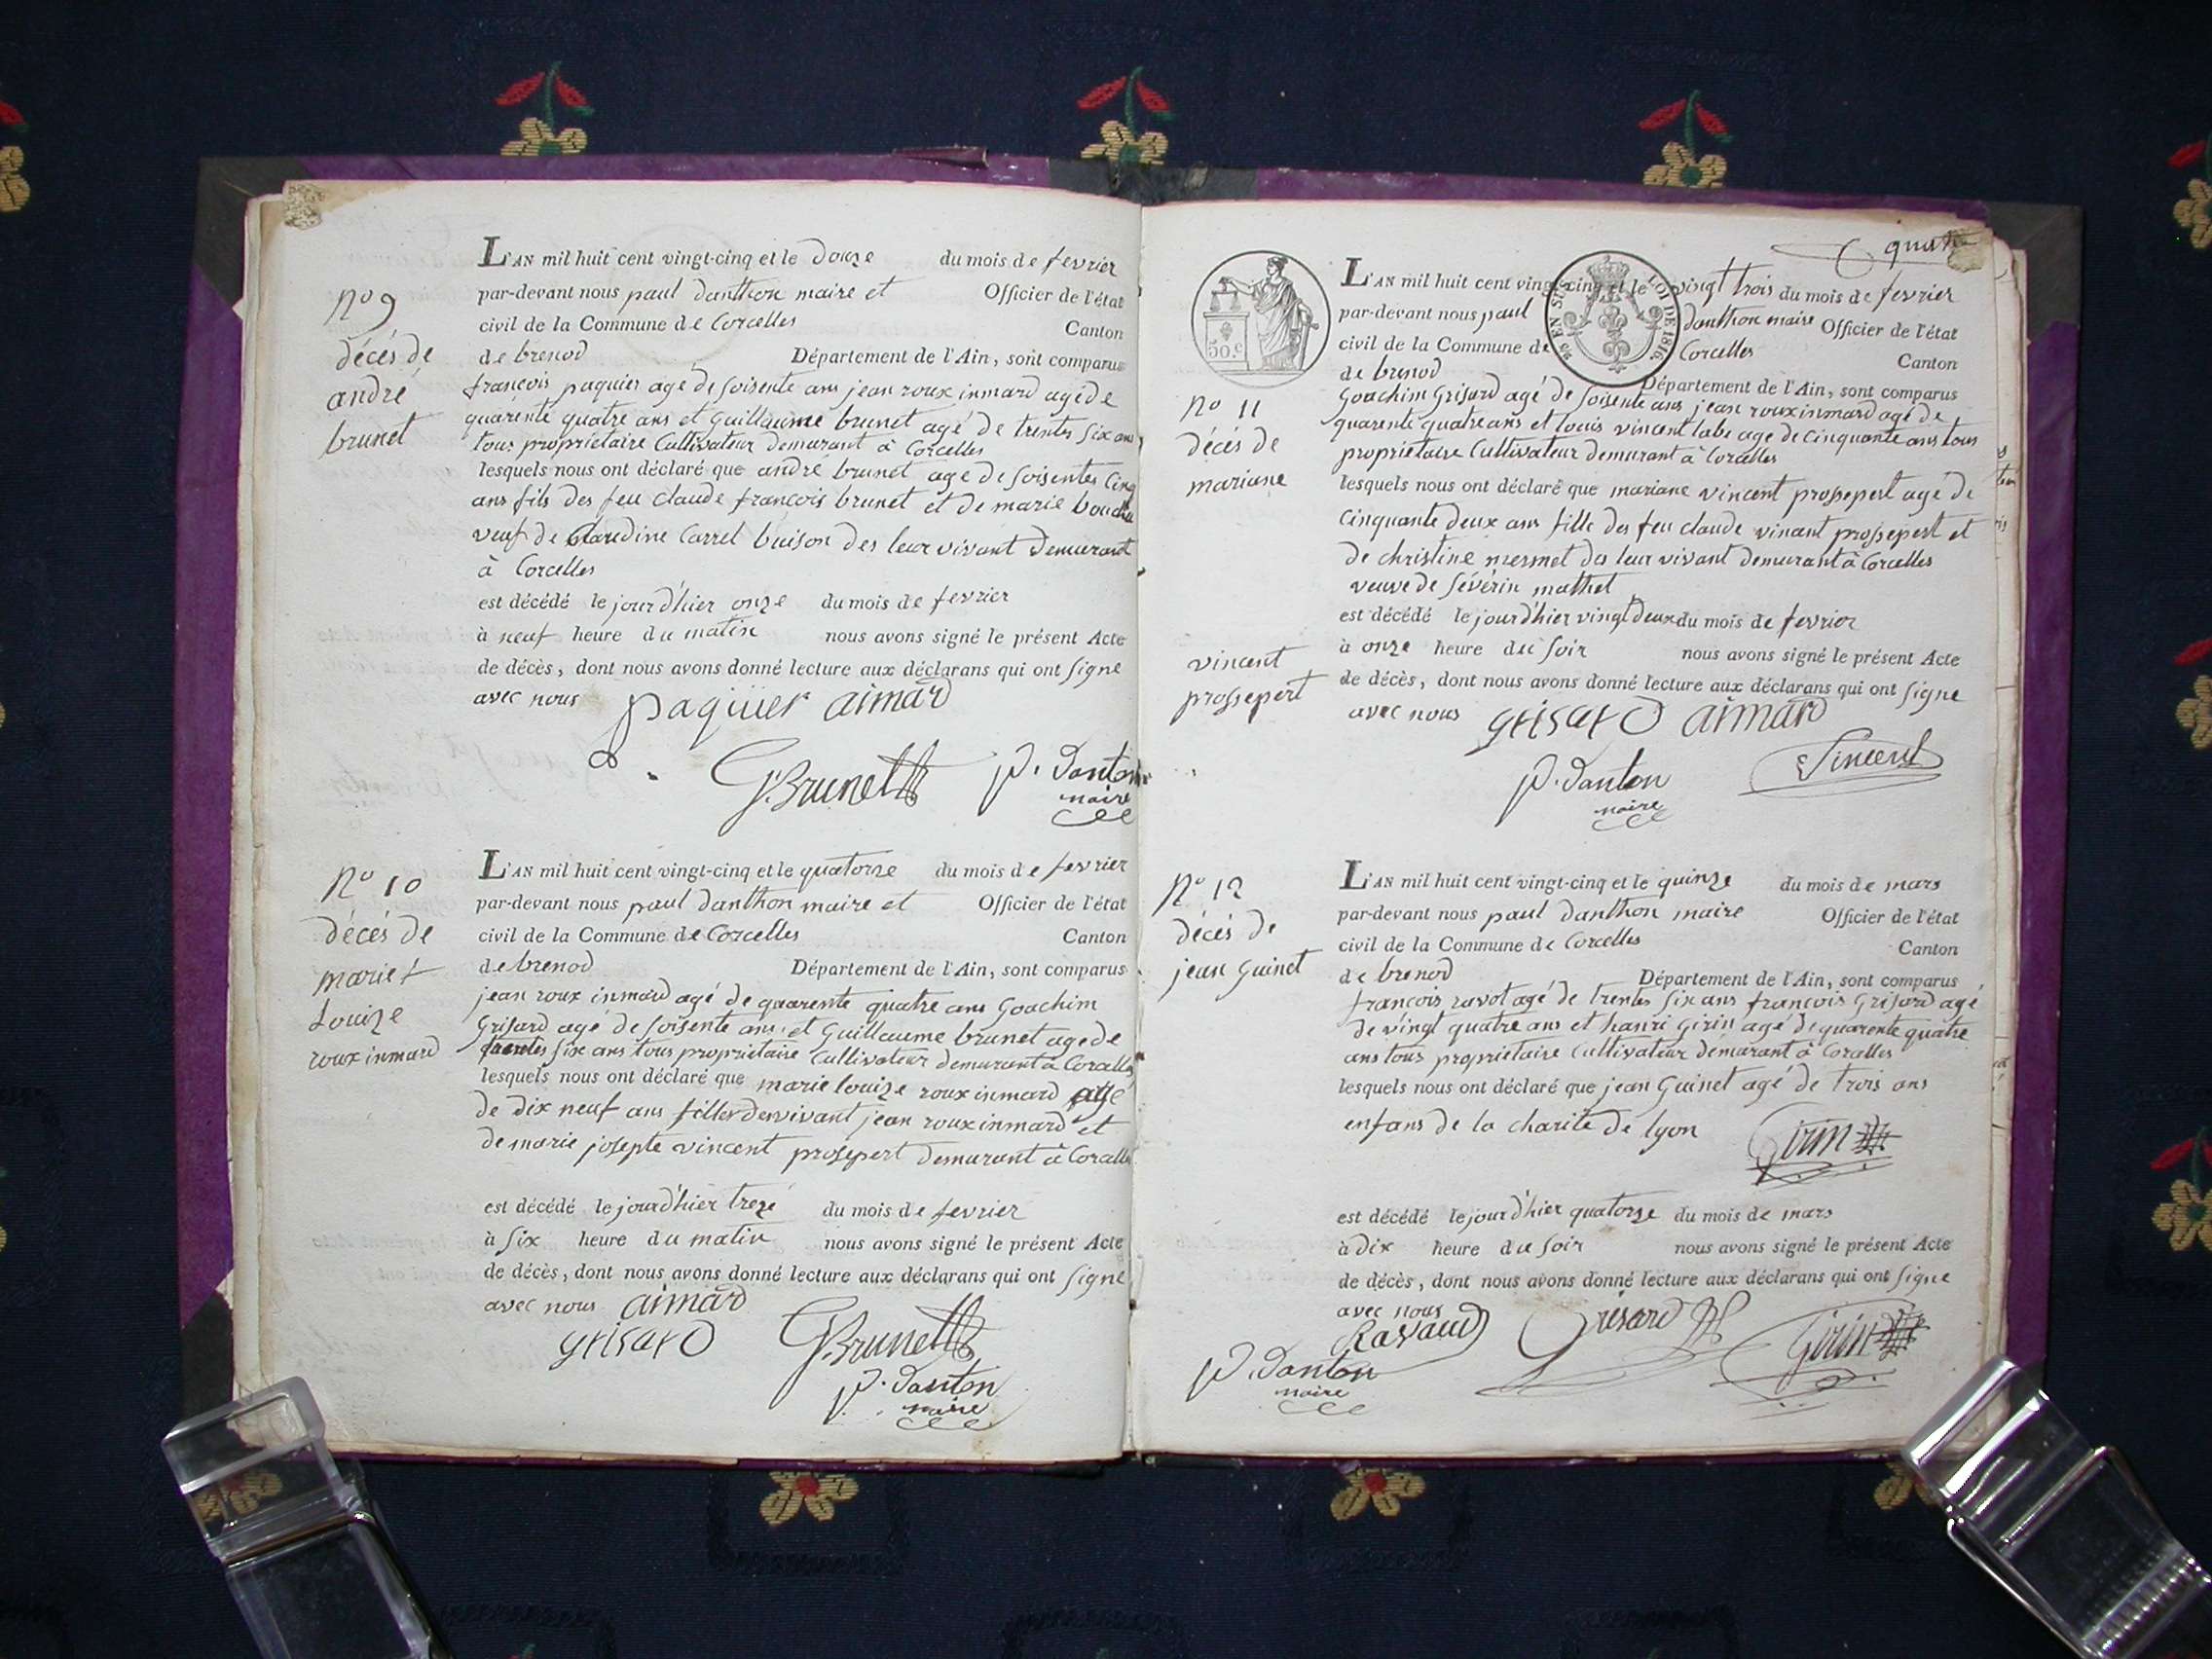 No 9
décés de
andré
brunet
L'AN mil huit cent vingt-cinq et le douze du mois de fevrier
par-devant nous paul danthon maire et Officier de l'état
civil de la Commune de Corcelles Canton
de brenod Département de l'Ain, sont comparus
françois paquier agé de soisente ans jean roux inmard agé de
quarente quatre ans et guillaume brunet agé de trentes six ans
tous propriétaire Cultivateur demurant à Corcelles
lesquels nous ont déclaré que andré brunet agé de soisentes Cinq
ans fils des feu claude françois brunet et de marie bouchu
veuf de Claudine Carrel buison des leur vivant demurant
à Corcelles
est décédé le jour d'hier onze du mois de fevrier
à neuf heure du matin nous avons signé le présent Acte
de décès, dont nous avons donné lecture aux déclarans qui ont signe
avec nous paquier aimard
G. Brunet P. Danton
maire
No 10
décés de
marie
Louize
roux inmard
L'AN mil huit cent vingt-cinq et le quatorze du mois de fevrier
par-devant nous paul danthon maire et Officier de l'état
civil de la Commune de Corcelles Canton
de brenod Département de l'Ain, sont comparus
jean roux inmard agé de quarente quatre ans Goachim
Grisard agé de soisente ans et Guillaume brunet agé de
trentes six ans tous propriétaire Cultivateur demurant à Corcelles
lesquels nous ont déclaré que marie louize roux inmard agé
de dix neuf ans fille des vivant jean roux inmard et
de marie josepte vincent prossepert demurant à Corcelles
est décédé le jour d'hier treze du mois de fevrier
à six heure du matin nous avons signé le présent Acte
de décès, dont nous avons donné lecture aux déclarans qui ont signé
avec nous aimard
grisard G. Brunet
P. Danton
maire
quatre
50.c
EN SUS
LOI DE 1816.
No 11
décés de
mariane
vincent
prossepert
L'AN mil huit cent vingt-cinq et le vingt trois du mois de fevrier
par-devant nous paul danthon maire Officier de l'état
civil de la Commune de Corcelles Canton
de brenod Département de l'Ain, sont comparus
Goachim Grisard agé de soisente ans jean roux inmard agé de
quarente quatre ans et louis vincent labe agé de cinquante ans tous
propriétaire Cultivateur demurant à Corcelles
lesquels nous ont déclaré que mariane vincent prossepert agé de
cinquante deux ans fille des feu claude vincent prossepert et
de christine mermet des leur vivant demurant à Corcelles
veuve de séverin mathet
est décédé le jour d'hier vingt deux du mois de fevrier
à onze heure du soir nous avons signé le présent Acte
de décès, dont nous avons donné lecture aux déclarans qui ont signe
avec nous grisard aimard
P. Danton Vincent
maire
No 12
décés de
jean Guinet
L'AN mil huit cent vingt-cinq et le quinze du mois de mars
par-devant nous paul danthon maire Officier de l'état
civil de la Commune de Corcelles Canton
de brenod Département de l'Ain, sont comparus
françois ravot agé de trentes six ans françois Grisard agé
de vingt quatre ans et hanri Girin agé de quarente quatre
ans tous propriétaire Cultivateur demurant à Corcelles
lesquels nous ont déclaré que jean Guinet agé de trois ans
enfans de la charité de lyon Girin
est décédé le jour d'hier quatorze du mois de mars
à dix heure du soir nous avons signé le présent Acte
de décès, dont nous avons donné lecture aux déclarans qui ont signe
avec nous
Ravaud Grisard Girin
P. Danton
maire